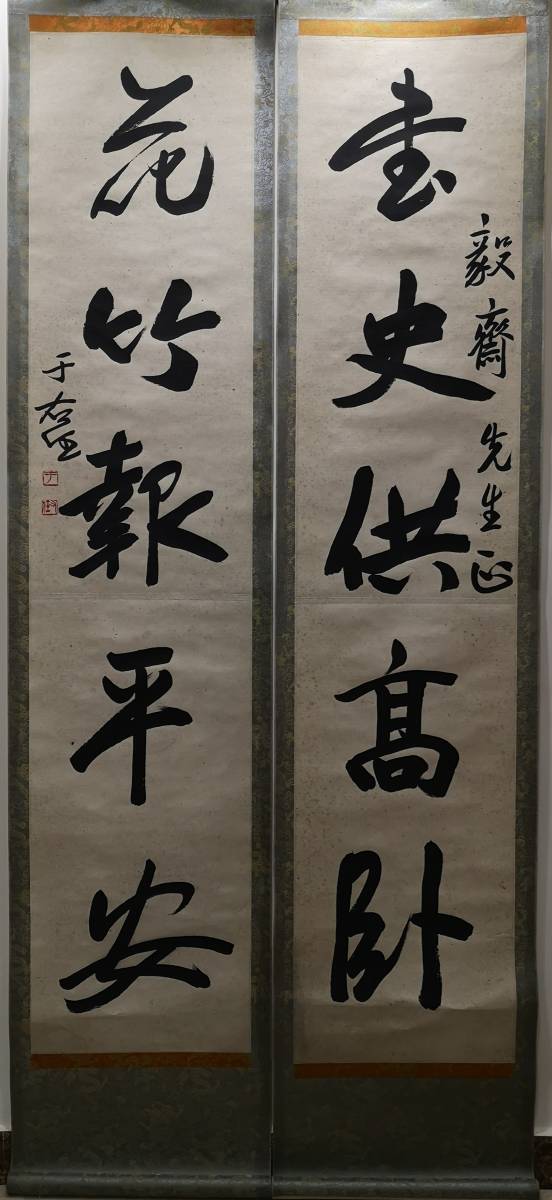 書史供高卧
毅齋先生正
花竹報平安
于右任